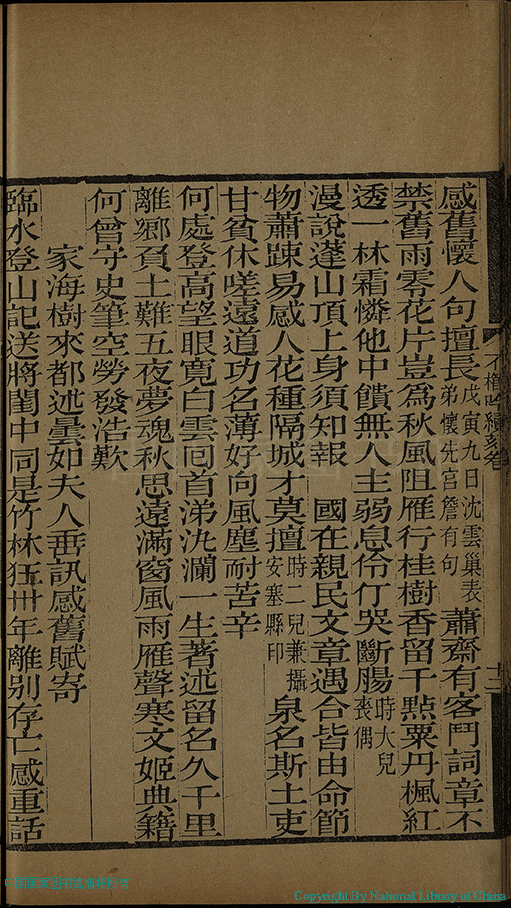 不櫛吟續刻卷
十二
感舊懷人句擅長戊寅九日沈雲巢表弟懷先官詹有句蕭齋有客鬥詞章不
禁舊雨零花片豈爲秋風阻雁行桂樹香留千點粟丹楓紅
透一林霜憐他中饋無人主弱息伶仃哭斷腸時大兒喪偶
漫說蓬山頂上身須知報國在親民文章遇合皆由命節
物蕭踈易感人花種隔城才莫擅時二兒兼攝安塞縣印泉名斯土吏
甘貧休嗟遠道功名薄好向風塵耐苦辛
何處登高望眼寬白雲囘首涕汍瀾一生著述留名久千里
離鄉負土難五夜夢魂秋思遠滿窗風雨雁聲寒文姬典籍
何曾守史筆空勞發浩歎
家海樹來都述曇如夫人垂訊感舊賦寄
臨水登山記送將閨中同是竹林狂卅年離別存亡感重話
Copyright By National Library of China